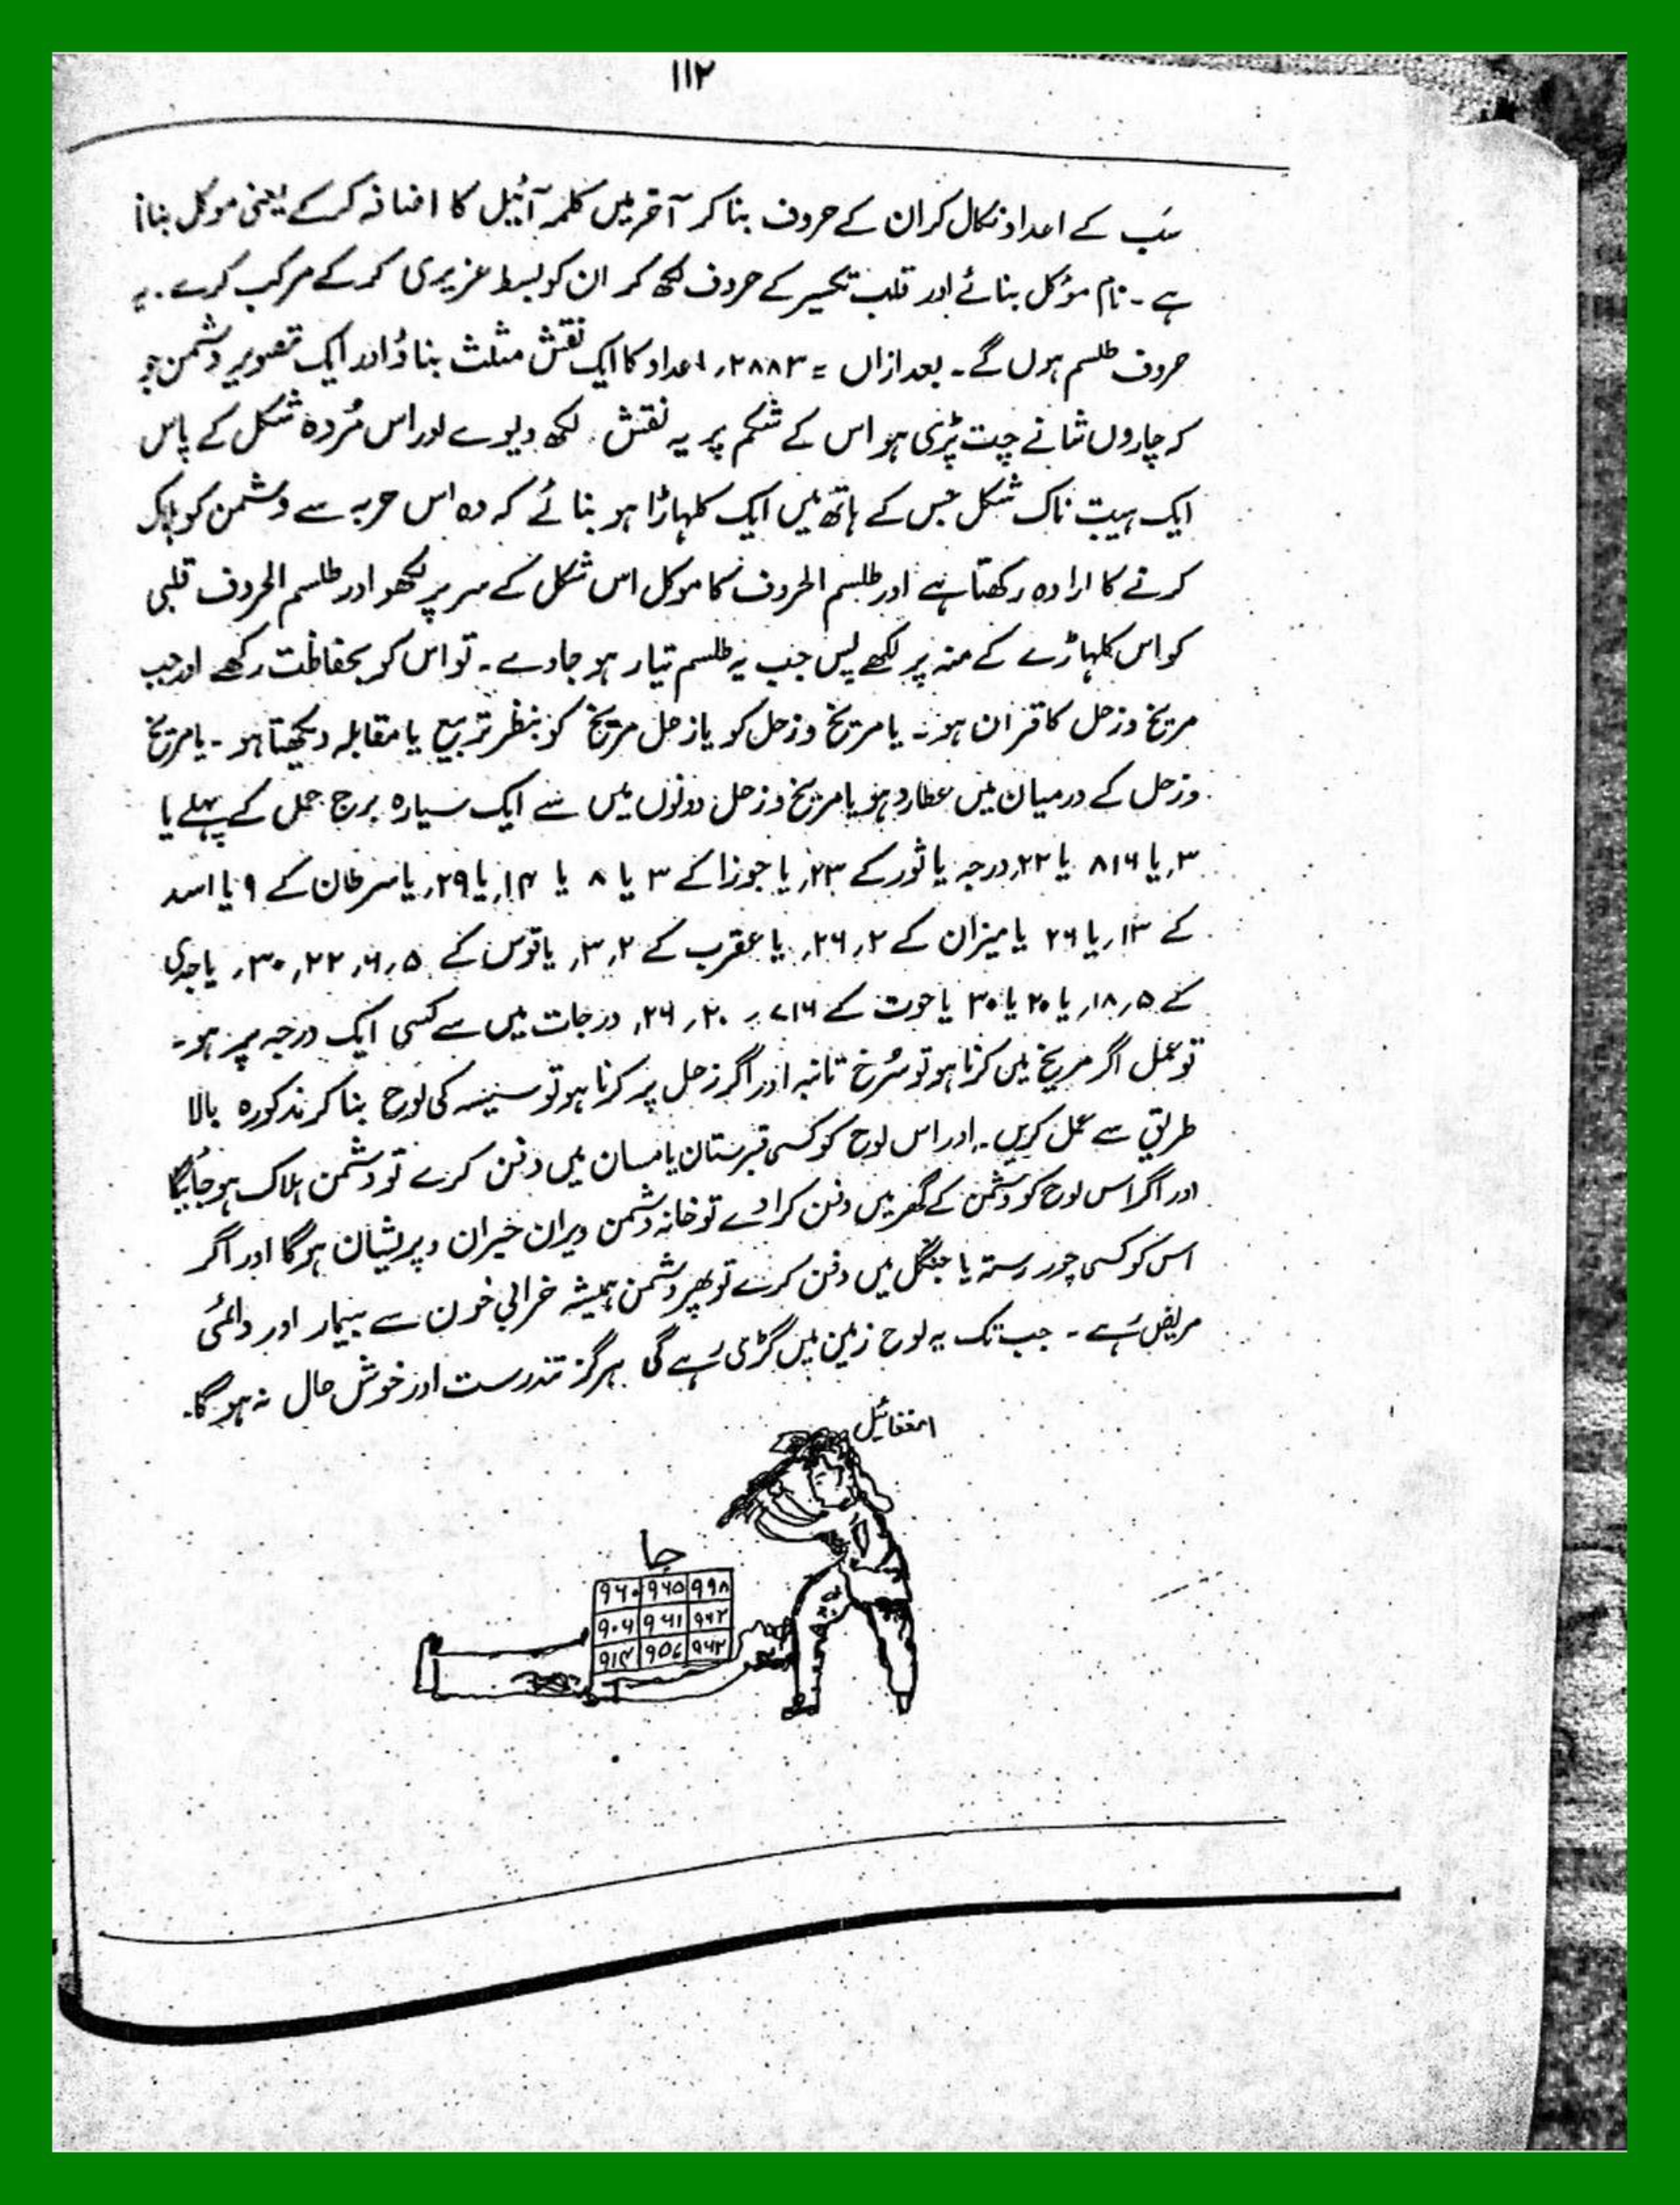 ۱۱۲
سَب کے اعداد نکال کر ان کے حروف بنا کر آخر میں کلمہ آئیل کا اضافہ کرکے یعنی موکل بنانا
ہے۔ نام مؤکل بنائے اور قلب تکسیر کے حروف لکھ کر ان کو بسط عزیزی کرکے مرکب کرے۔ یہ
حروف طلسم ہوں گے۔ بعد ازاں = ۲۸۸۳، اعداد کا ایک نقش مثلث بناؤ اور ایک تصویر دشمن جو
کہ چاروں شانے چت پڑی ہو اس کے شکم پر یہ نقش لکھ دیوے اور اس مُردہ شکل کے پاس
ایک ہیبت ناک شکل جس کے ہاتھ میں ایک کلہاڑا ہو بنائے کہ وہ اس حربہ سے دشمن کو ہلاک
کرنے کا ارادہ رکھتا ہے اور طلسم الحروف کا موکل اس شکل کے سر پر لکھو اور طلسم الحروف قلبی
کو اس کلہاڑے کے منہ پر لکھے پس جب یہ طلسم تیار ہو جاوے۔ تو اس کو بحفاظت رکھے اور جب
مریخ و زحل کا قران ہو۔ یا مریخ و زحل کو یا زحل مریخ کو بنظر تربیع یا مقابلہ دیکھتا ہو۔ یا مریخ
و زحل کے درمیان میں عطارد ہو یا مریخ و زحل دونوں میں سے ایک سیارہ برج حمل کے پہلے یا
۳، یا ۸۱۶ یا ۲۲، درجہ یا ثور کے ۲۳، یا جوزا کے ۳ یا ۸ یا ۱۴، یا ۲۹، یا سرطان کے ۹ یا اسد
کے ۱۳، یا ۲۶ یا میزان کے ۲، ۲۶، یا عقرب کے ۲، ۳، یا قوس کے ۵، ۶، ۲۲، ۳۰، یا جدی
کے ۵، ۱۸، یا ۲۰ یا ۳۰ یا حوت کے ۷۱۶، ۲۰، ۲۶، درجات میں سے کسی ایک درجہ پر ہو۔
تو عمل اگر مریخ میں کرنا ہو تو سُرخ تانبہ اور اگر زحل پر کرنا ہو تو سیسہ کی لوح بنا کر مذکورہ بالا
طریق سے عمل کریں۔ اور اس لوح کو کسی قبرستان یا مسان میں دفن کرے تو دشمن ہلاک ہو جائیگا
اور اگر اس لوح کو دشمن کے گھر میں دفن کرا دے تو خانہ دشمن ویران حیران و پریشان ہوگا اور اگر
اس کو کسی چور رستہ یا جنگل میں دفن کرے تو پھر دشمن ہمیشہ خرابی خون سے بیمار اور دائمی
مریض رہے۔ جب تک یہ لوح زمین میں گڑی رہے گی ہرگز تندرست اور خوش حال نہ ہوگا۔
جا
۹۶۰ ۹۶۵ ۹۹۸
۹۰۶ ۹۶۱ ۹۶۲
۹۱۴ ۹۵۷ ۹۶۲